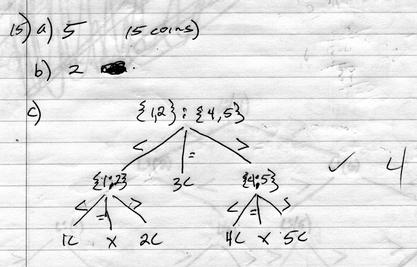 15) a) 5 (5 coins)
b) 2
c)
{1,2} : {4,5}
< = >
{1:2} 3C {4:5}
< = > < = >
1C X 2C 4C X 5C
✓ 4